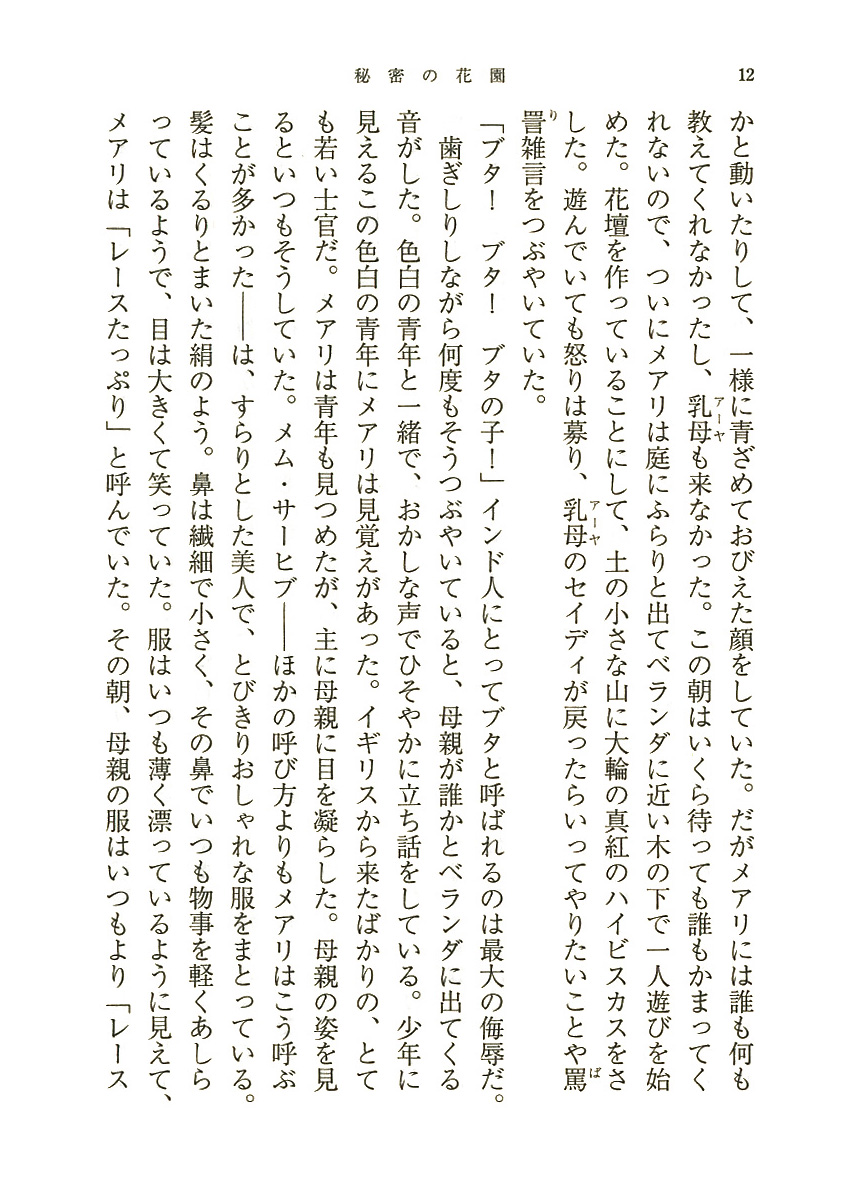 秘密の花園
12
かと動いたりして、一様に青ざめておびえた顔をしていた。だがメアリには誰も何も
教えてくれなかったし、乳母アーヤも来なかった。この朝はいくら待っても誰もかまってく
れないので、ついにメアリは庭にふらりと出てベランダに近い木の下で一人遊びを始
めた。花壇を作っていることにして、土の小さな山に大輪の真紅のハイビスカスをさ
した。遊んでいても怒りは募り、乳母アーヤのセイディが戻ったらいってやりたいことや罵ば
詈り雑言をつぶやいていた。
「ブタ！　ブタ！　ブタの子！」インド人にとってブタと呼ばれるのは最大の侮辱だ。
　歯ぎしりしながら何度もそうつぶやいていると、母親が誰かとベランダに出てくる
音がした。色白の青年と一緒で、おかしな声でひそやかに立ち話をしている。少年に
見えるこの色白の青年にメアリは見覚えがあった。イギリスから来たばかりの、とて
も若い士官だ。メアリは青年も見つめたが、主に母親に目を凝らした。母親の姿を見
るといつもそうしていた。メム・サーヒブ――ほかの呼び方よりもメアリはこう呼ぶ
ことが多かった――は、すらりとした美人で、とびきりおしゃれな服をまとっている。
髪はくるりとまいた絹のよう。鼻は繊細で小さく、その鼻でいつも物事を軽くあしら
っているようで、目は大きくて笑っていた。服はいつも薄く漂っているように見えて、
メアリは「レースたっぷり」と呼んでいた。その朝、母親の服はいつもより「レース